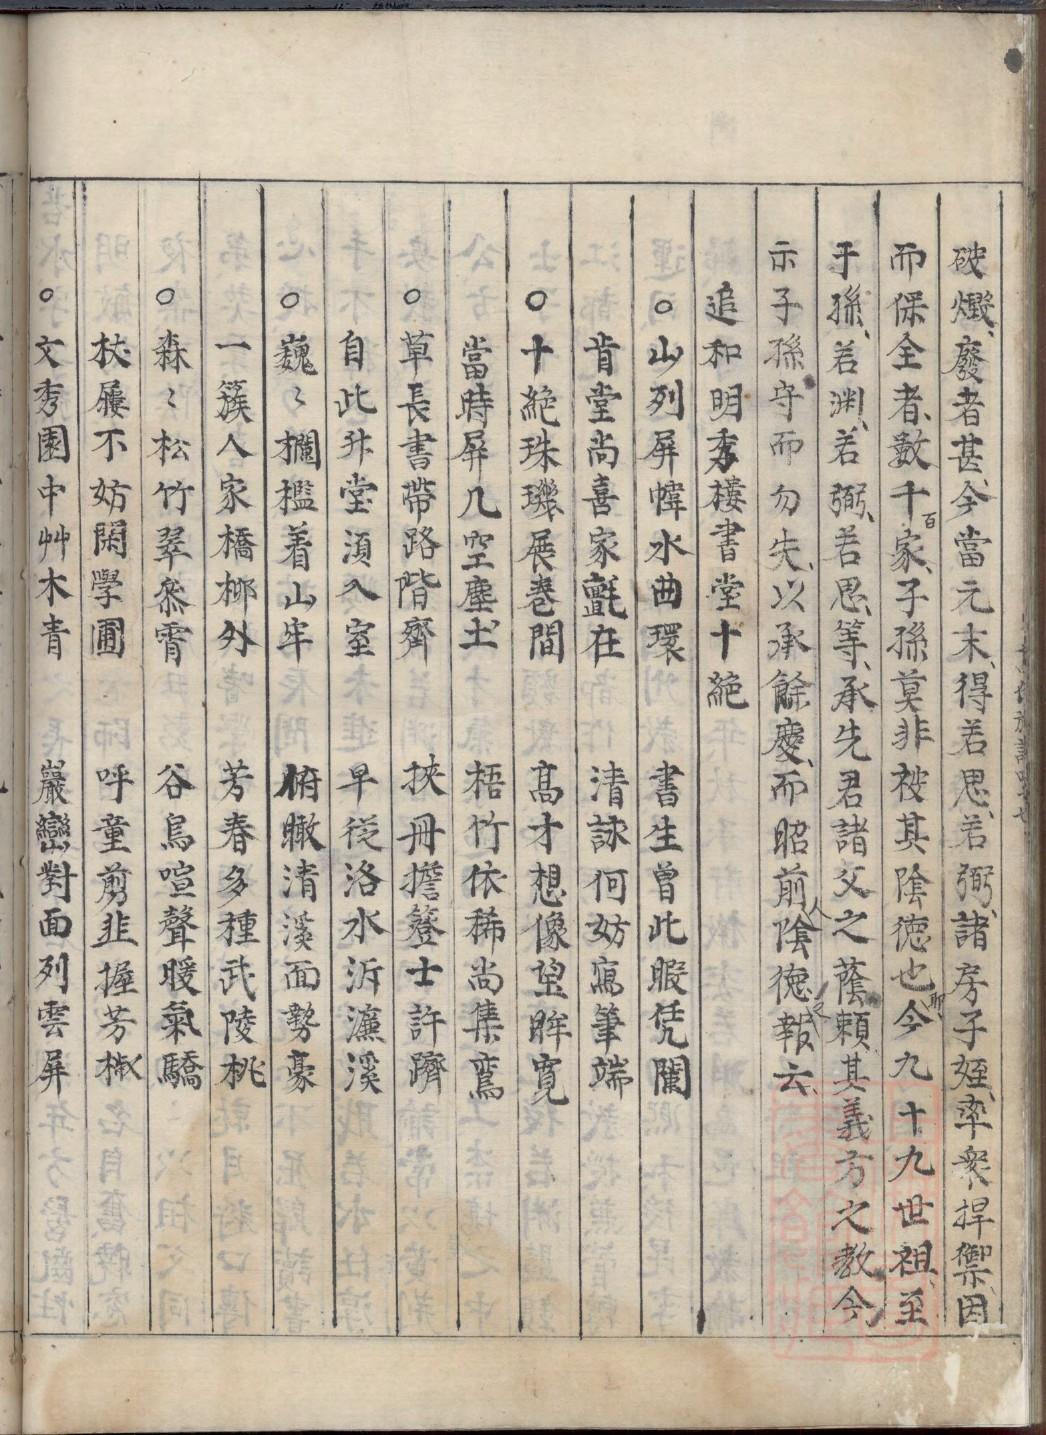 破爔廢者甚今當元末得若思若弼諸房子姪率衆捍禦因
而保全者數千百家子孫莫非被其陰德也今九十九世祖至
于孫若渊若弼若思等承先君諸父之蔭賴其義方之教今
示子孫守而勿失以承餘慶而昭前人陰德報云
追和明秀樓書堂十絶
○山列屏幃水曲環 書生曾此暇凭闌
肯堂尚喜家氈在 清詠何妨寫筆端
○十絶珠璣展巻間 高才想像望眸寛
當時屏几空塵土 梧竹依稀尚集鸞
○草長書帶路階齊 挾冊擔簦士許躋
自此升堂湏入室 早從洛水泝濂溪
○巍〻欄檻着山牢 俯瞰清溪面勢豪
一簇人家橋栁外 芳春多種武陵桃
○森〻松竹翠叅霄 谷鳥喧聲暖氣驕
杖屨不妨閑學圃 呼童剪韭握芳椒
○文秀園中艸木青 巖巒對面列雲屏